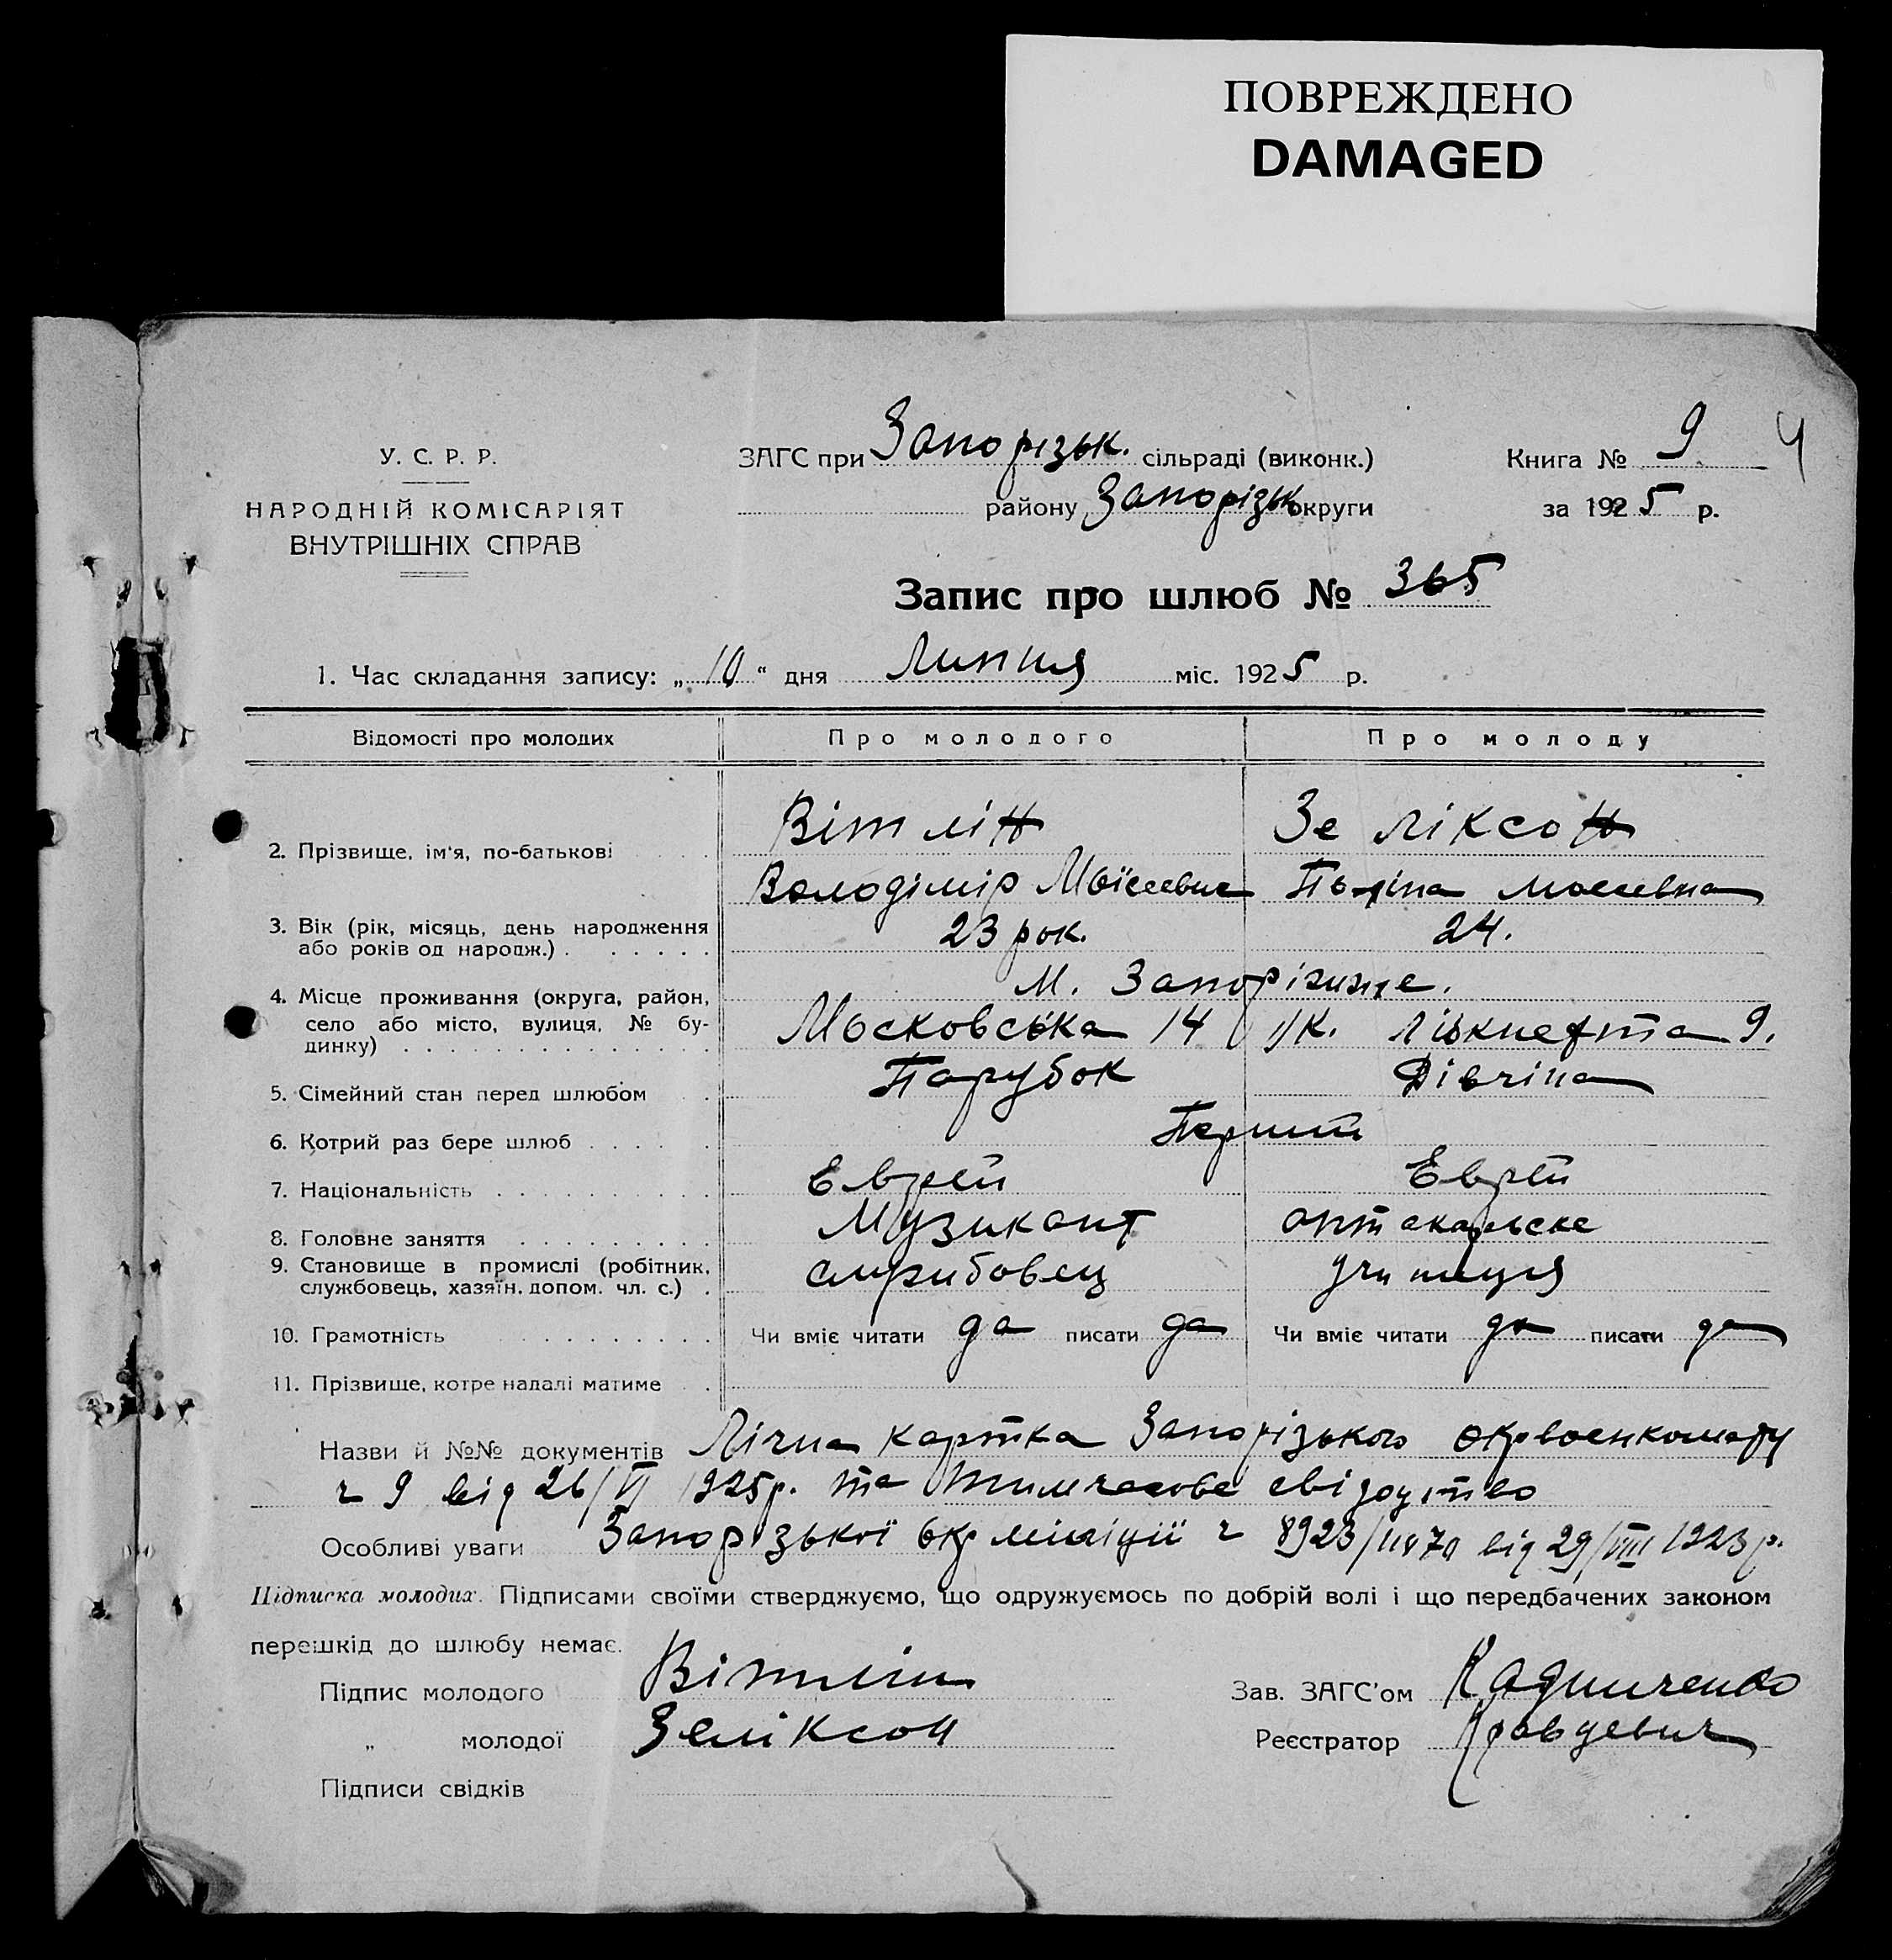 ПОВРЕЖДЕНО
DAMAGED
У. С. Р. Р.
НАРОДНІЙ КОМІСАРІЯТ
ВНУТРІШНІХ СПРАВ
ЗАГС при Запорізьк. сільраді (виконк.)
району Запорізьк округи
Книга № 9 4
за 1925 р.
Запис про шлюб № 365
1. Час складання запису: „ 10 “ дня Липня міс. 1925 р.
Відомості про молодих Про молодого Про молоду
2. Прізвище, ім'я, по-батькові Вітлін Зеліксон
Володімір Моїсеевич Поліна Моисевна
3. Вік (рік, місяць, день народження
або років од народж.) 23 рок. 24.
М. Запоріжже.
4. Місце проживання (округа, район,
село або місто, вулиця, № бу-
динку) Московська 14 Лібкнехта 9.
5. Сімейний стан перед шлюбом Парубок Дівчіна
6. Котрий раз бере шлюб Перший
7. Національність Еврей Еврей
8. Головне заняття Музикант аптекарьске
9. Становище в промислі (робітник,
службовець, хазяїн, допом. чл. с.) службовец учиниця
10. Грамотність Чи вміє читати да писати да Чи вміє читати да писати да
11. Прізвище, котре надалі матиме
Назви й №№ документів Лічна картка Запорізького окрвоенкомату
ч 9 від 26/VI 1925р. та тимчасове свідоцтво
Особливі уваги Запорізької окр міліції ч 8923/ від 29/VIII 1923 р.
Підписка молодих. Підписами своїми стверджуємо, що одружуємось по добрій волі і що передбачених законом
перешкід до шлюбу немає.
Підпис молодого Вітлін Зав. ЗАГС'ом
„ молодої Зеліксон Реєстратор Кравцевич
Підписи свідків